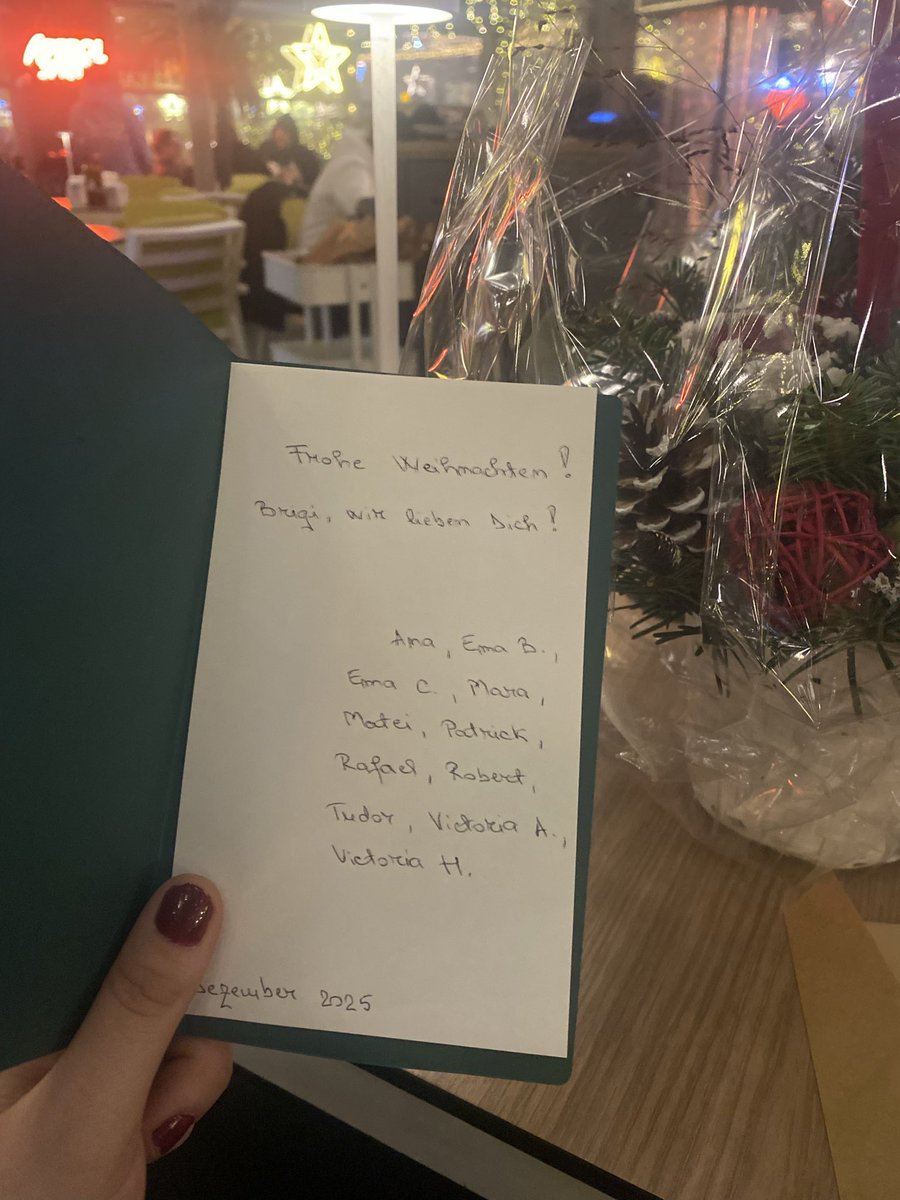 Frohe Weihnachten!
Brigi, wir lieben Dich!
Ana, Ema B.,
Ema C., Mara,
Matei, Patrick,
Rafael, Robert,
Tudor, Victoria A.,
Victoria H.
Dezember 2025